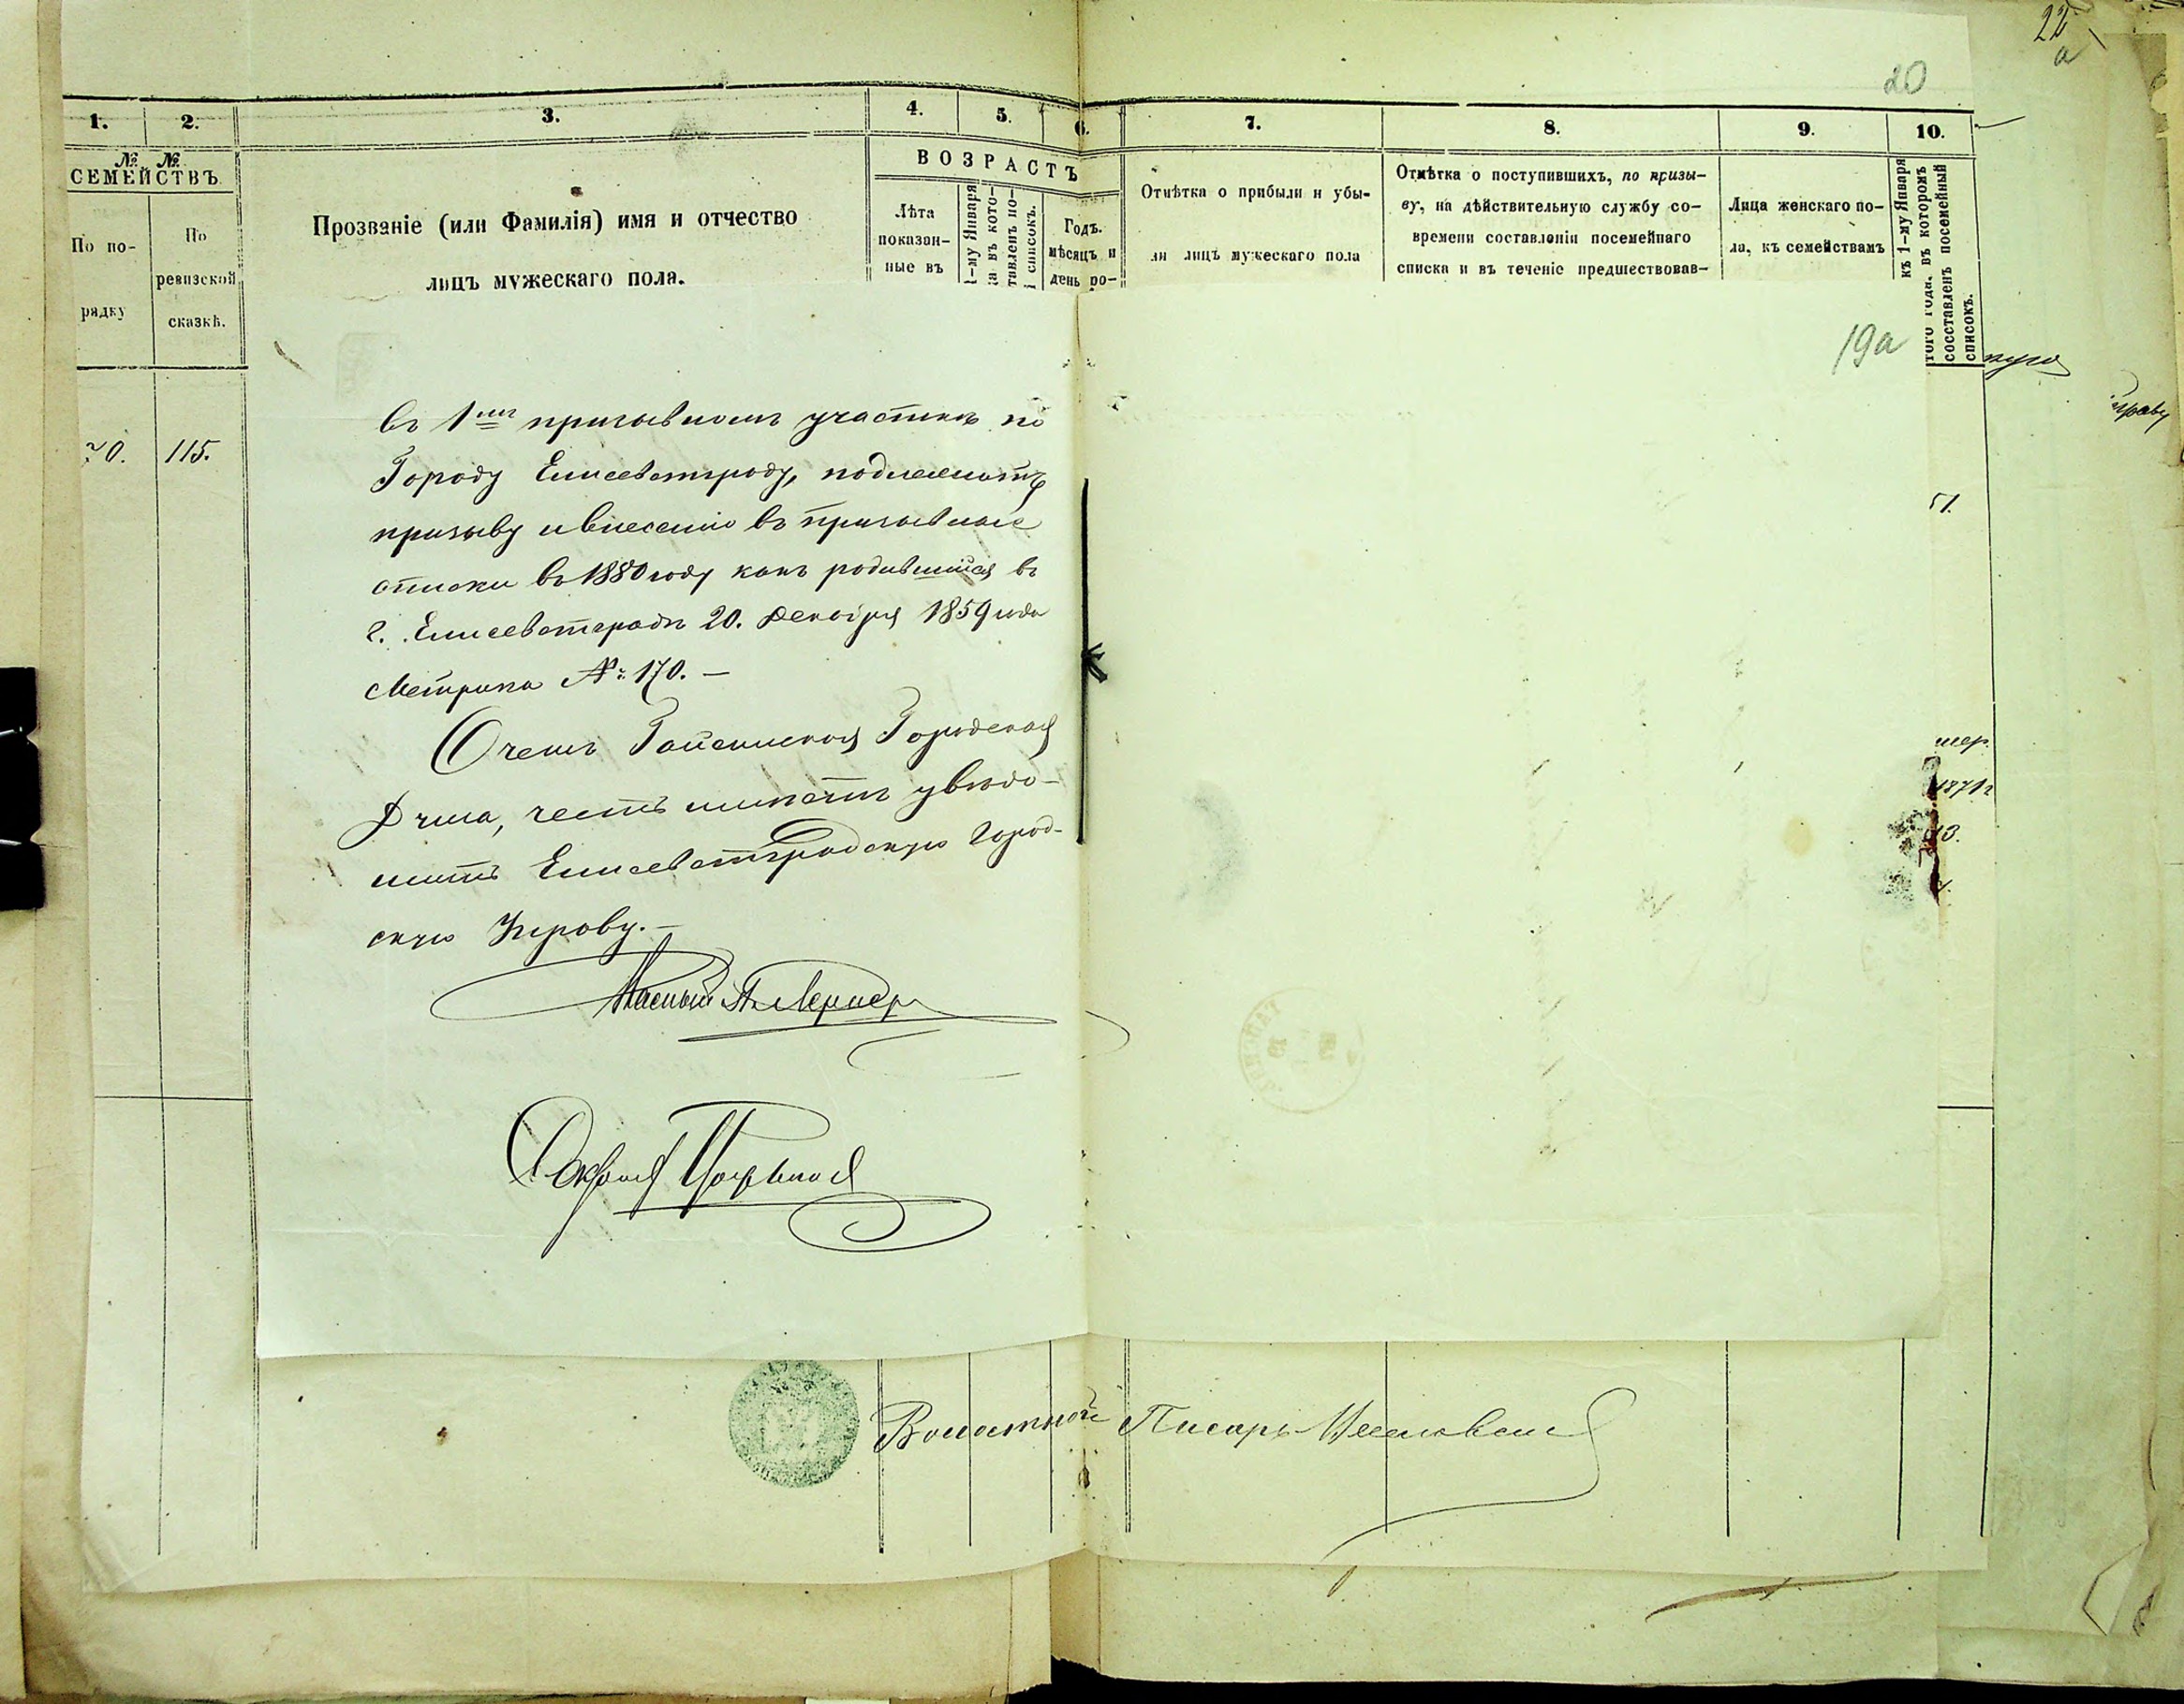 22
а
20
1. 2. 3. 4. 5. 6. 7. 8. 9. 10.
№ № СЕМЕЙСТВЪ
По по-
рядку
По
ревизской
сказкѣ.
Прозваніе (или Фамилія) имя и отчество
лицъ мужескаго пола.
ВОЗРАСТЪ
Лѣта
показан-
ные въ
1-му Января
да въ кото-
тавленъ по-
й списокъ.
Годъ.
мѣсяцъ и
день ро-
Отмѣтка о прибыли и убы-
ли лицъ мужескаго пола
Отмѣтка о поступившихъ, по призы-
ву, на дѣйствительную службу со-
времени составленіи посемейнаго
списка и въ теченіе предшествовав-
Лица женскаго по-
ла, къ семействамъ
къ 1-му Января
того года, въ которомъ
составленъ посемейный
списокъ.
19а
70. 115.
въ 1мъ призывномъ участкѣ по
Городу Елисаветграду, подлежитъ
призыву и внесенію въ призывные
списки въ 1880 году какъ родившійся въ
г. Елисаветградѣ 20. Декабря 1859 года
Метрика №: 170. —
О чемъ Гайсинская Городская
Дума, честь имѣетъ увѣдо-
мить Елисаветградскую Город-
скую Управу. —
51.
мер.
1871г
Волостной Писарь